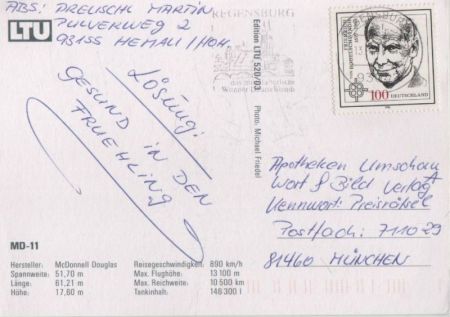 ABS: PREUSCHL MARTIN
PULVERWEG 2
93155 HEMAU/HOH.
LTU
Lösung:
GESUND IN DEN
FRUEHLING
REGENSBURG
Edition LTU 520/03 Photo: Michael Friedel
100 DEUTSCHLAND
Apotheken Umschau
Wort & Bild Verlag
Kennwort: Preisrätsel
Postfach: 711029
81460 MÜNCHEN
MD-11
Hersteller: McDonnell Douglas Reisegeschwindigkeit: 890 km/h
Spannweite: 51,70 m Max. Flughöhe: 13 100 m
Länge: 61,21 m Max. Reichweite: 10 500 km
Höhe: 17,60 m Tankinhalt: 148 300 l